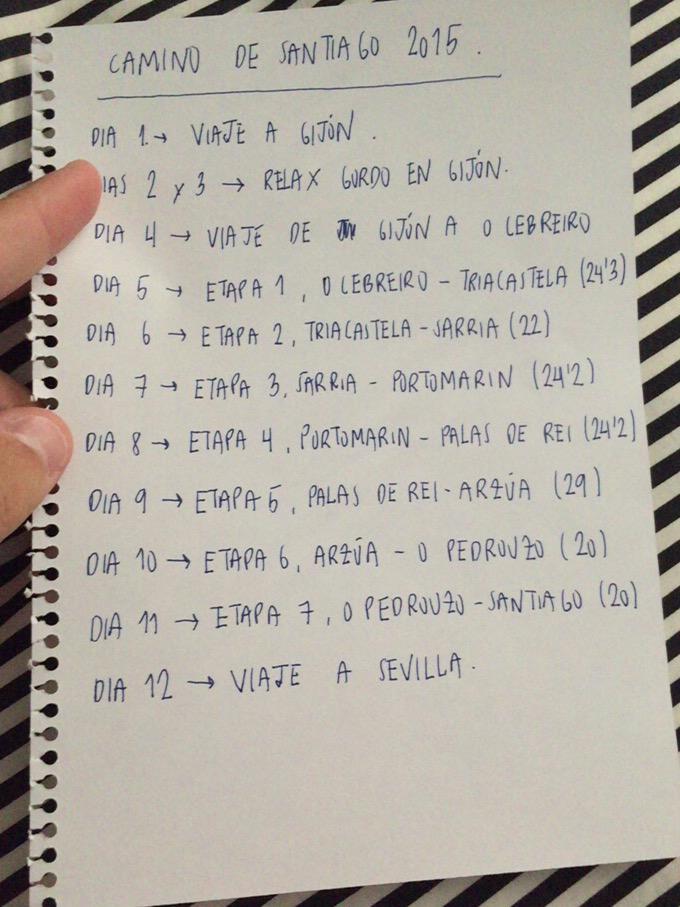 CAMINO DE SANTIAGO 2015.
DIA 1 → VIAJE A GIJÓN.
IAS 2 y 3 → RELAX GORDO EN GIJÓN.
DIA 4 → VIAJE DE GIJÓN A O LEBREIRO
DIA 5 → ETAPA 1, O LEBREIRO - TRIACASTELA (24'3)
DIA 6 → ETAPA 2, TRIACASTELA - SARRIA (22)
DIA 7 → ETAPA 3, SARRIA - PORTOMARIN (24'2)
DIA 8 → ETAPA 4, PORTOMARIN - PALAS DE REI (24'2)
DIA 9 → ETAPA 5, PALAS DE REI - ARZÚA (29)
DIA 10 → ETAPA 6, ARZÚA - O PEDROUZO (20)
DIA 11 → ETAPA 7, O PEDROUZO - SANTIAGO (20)
DIA 12 → VIAJE A SEVILLA.